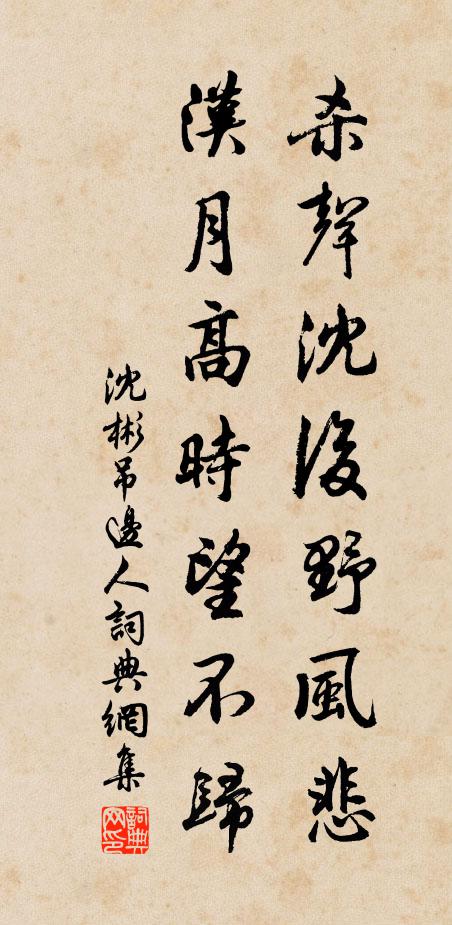 杀聲沈後野風悲
漢月高時望不歸
沈彬吊邊人詞典網集
詞典网印